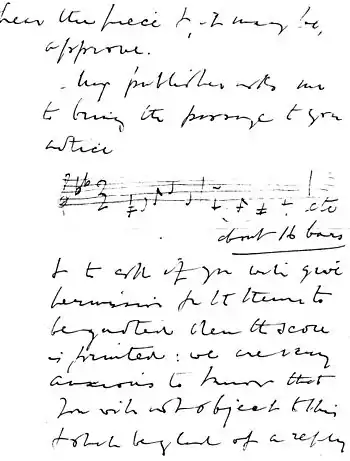 hear the piece &, it may be,
approve.
My publisher asks me
to bring the passage to your
notice
etc
about 16 bars
& to ask if you will give
permission for the theme to
be quoted when the score
is printed: we are very
anxious to know that
you will not object to this
& shall be glad of a reply